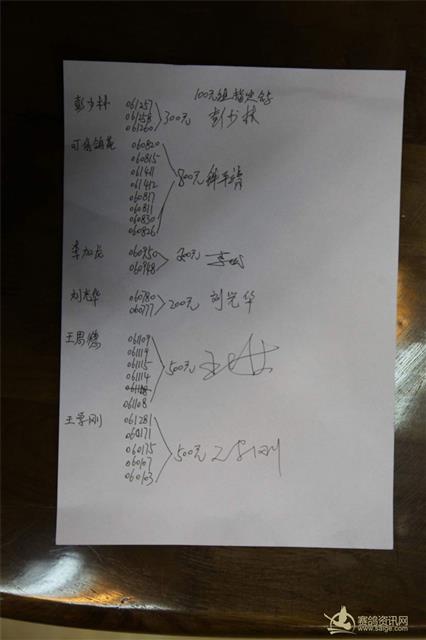 100元组指定鸽
彭少林 061257
061258
061260
300元 彭少林
060820
060815
061411
061412
060817
060811
060830
060826
800元
李加龙 060950
060948
200元
刘光华 060780
060777
200元 刘光华
王思德 061109
061119
061115
061114
061108
500元
王学刚 061281
060171
060175
060107
060103
500元 王学刚
赛鸽资讯网
www.saige.com